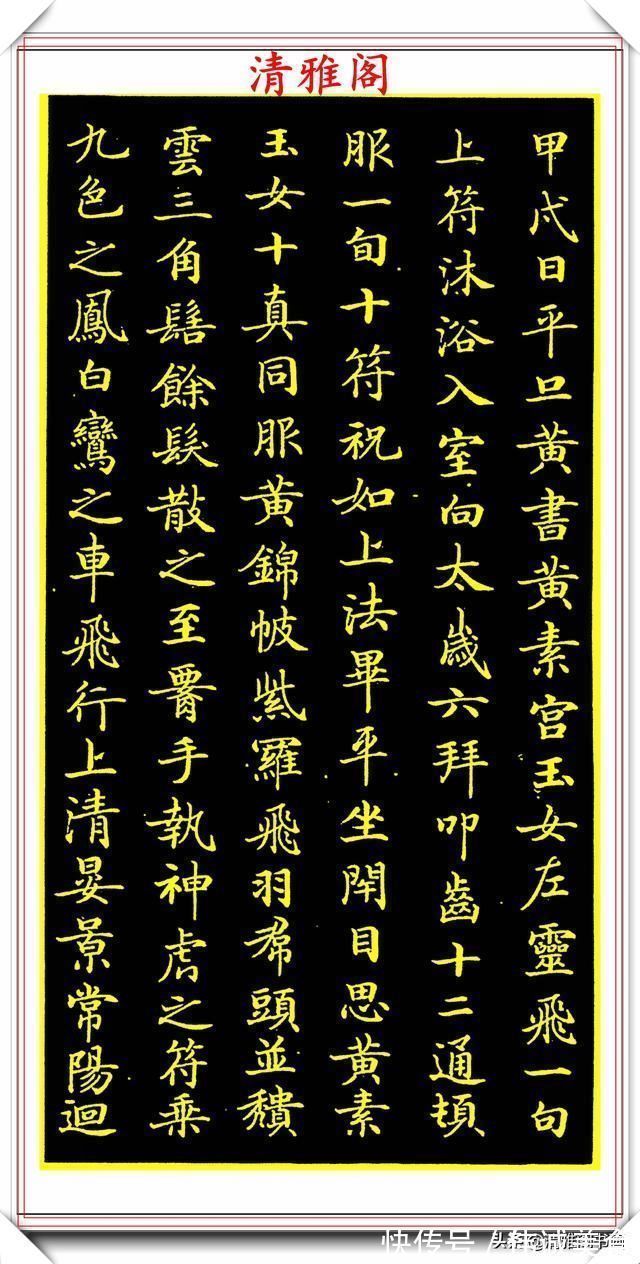 清雅阁
甲戌日平旦黃書黃素宮玉女左靈飛一旬
上符沐浴入室向太歲六拜叩齒十二通頓
服一旬十符祝如上法畢平坐閉目思黃素
玉女十真同服黃錦帔紫羅飛羽帬頭並穨
雲三角髻餘髮散之至腰手執神虎之符乗
九色之鳳白鸞之車飛行上清晏景常陽迴
快传号 /